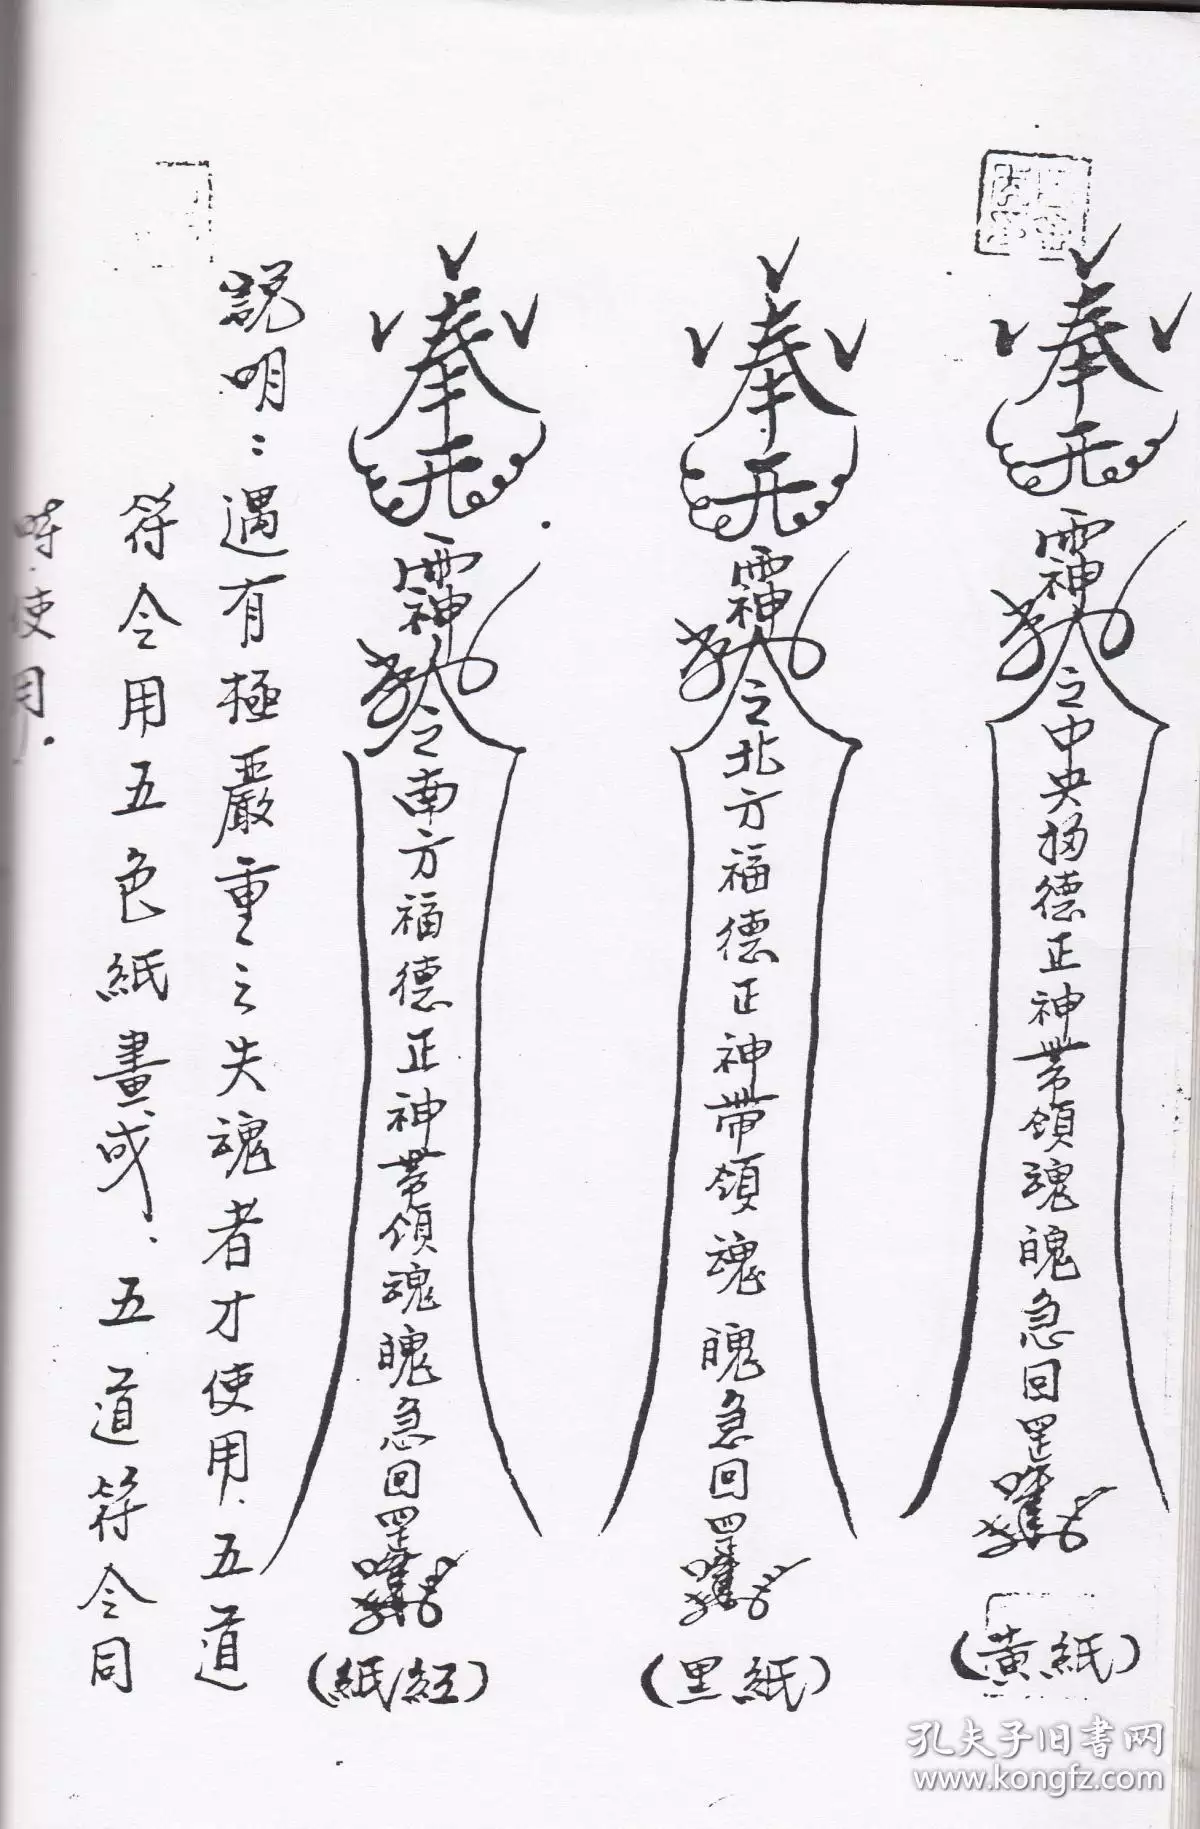 奉
神
令中央福德正神帶領魂魄急回罡
(黃紙)
奉
神
令北方福德正神帶領魂魄急回罡
(黑紙)
奉
神
令南方福德正神帶領魂魄急回罡
(紙紅)
說明：遇有極嚴重之失魂者才使用、五道
符令用五色紙畫或、五道符令同
時使用.
孔夫子旧书网
www.kongfz.com